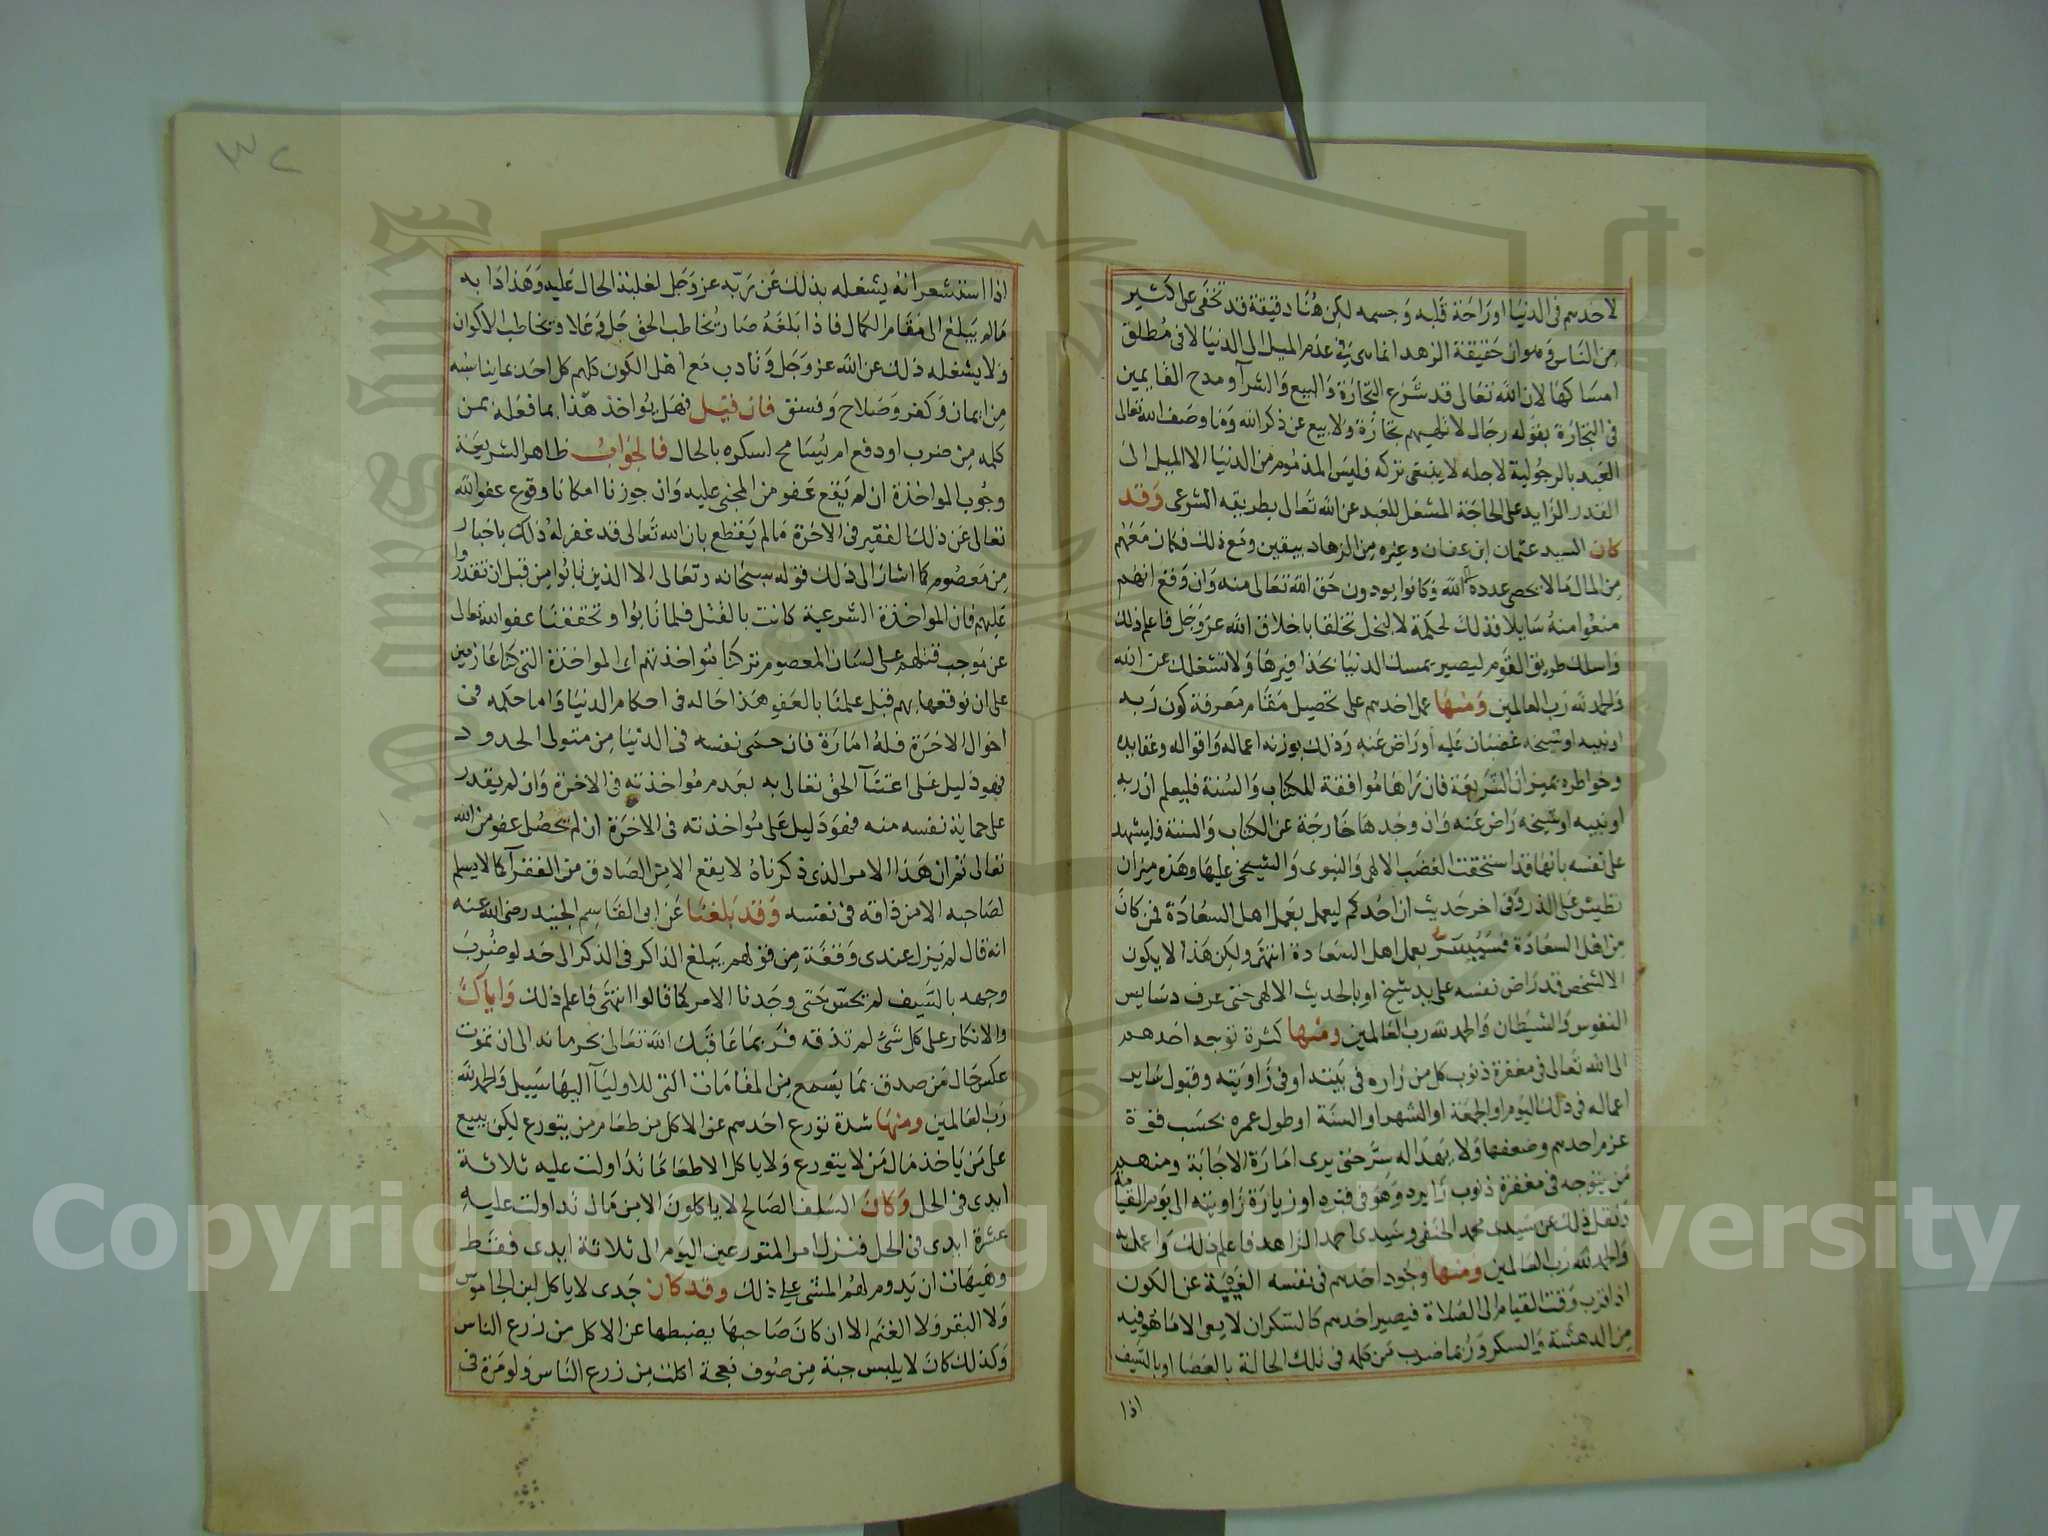 لاحدهم فى الدنيا اوراحة قلبه وجسمه لكن هنا دقيقة قد تخفى على كثير
من الناس وهو ان حقيقة الزهد انما هى فى عدم الميل الى الدنيا لا فى مطلق
امساكها لان الله تعالى قد شرع التجارة والبيع والشرآ ومدح القايمين
فى التجارة بقوله رجال لا تلهيهم تجارة ولا بيع عن ذكر الله وما وصف الله تعالى
العبد بالرجولية لاجله لا ينبغى تركه فليس المذموم من الدنيا الا الميل الى
القدر الزايد على الحاجة المشغل للعبد عن الله تعالى بطريقه الشرعى وقد
كان السيد عثمان ابن عفان وغيره من الزهاد بيقين ومع ذلك فكان معهم
من المال مالا يحصى عدده الا الله وكانوا يودون حق الله تعالى منه وان وقع انهم
منعوا منه سايلا فذلك لحكمة لا لبخل تخلقا باخلاق الله عز وجل فاعلم ذلك
واسلك طريق القوم ليصير يمسك الدنيا بحذافيرها ولا تشغلك عن الله
والحمد لله رب العالمين ومنها عمل احدهم على تحصيل مقام معرفة كون ربه
او نبيه او شيخه غضبان عليه او راض عنه وذلك بوزنه اعماله واقواله وعقايده
وخواطره بميزان الشريعة فان راها موافقة للكتاب والسنة فليعلم ان ربه
او نبيه او شيخه راض عنه وان وجدها خارجة عن الكتاب والسنة فليشهد
على نفسه بانها قد استحقت الغضب الالهى والنبوى والشيخى عليها وهذه ميزان
تطيش على الذر وفى اخر حديث ان احدكم ليعمل بعمل اهل السعادة فمن كان
من اهل السعادة فسييسر بعمل اهل السعادة انتهى ولكن هذا لا يكون
الا لشخص قد راض نفسه على يد شيخ او بالحديث الالهى حتى عرف دسايس
النفوس والشيطان والحمد لله رب العالمين ومنها كثرة توجه احدهم
الى الله تعالى فى مغفرة ذنوب كل من زاره فى بيته او فى زاويته وقبول ساير
اعماله فى ذلك اليوم او الجمعة او الشهر او السنة او طول عمره بحسب قوة
عزم احدهم وضعفها ولا يهدا له سر حتى يرى امارة الاجابة ومنهم
من يتوجه فى مغفرة ذنوب زايره وهو فى قبره او زيارة زاويته الى يوم القيامة
نقل ذلك عن سيدى محمد الحنفى وسيدى احمد الزاهد فاعلم ذلك واعمل به
والحمد لله رب العالمين ومنها وجود احدهم فى نفسه الغيبة عن الكون
اذا قرب وقت القيام الى الصلاة فيصير احدهم كالسكران لا يعى الا ما هو فيه
من الدهشة والسكر وربما ضرب من كلمه فى تلك الحالة بالعصا او بالسيف
اذا
٣٢
اذا استشعر انه يشغله بذلك عن ربه عز وجل لغلبة الحال عليه وهذا دابه
مالم يبلغ الى مقام الكمال فاذا بلغه صار يخاطب الحق جل وعلا ويخاطب الاكوان
ولا يشغله ذلك عن الله عز وجل وتادب مع اهل الكون كلهم كل احد بما يناسبه
من ايمان وكفر وصلاح وفسق فان قيل فهل يواخذ هذا بما فعله بمن
كلمه من ضرب او دفع ام يسامح لسكره بالحال فالجواب ظاهر الشريعة
وجوب المواخذة ان لم يقع عفو من المجنى عليه وان جوزنا امكانا وقوع عفو الله
تعالى عن ذلك الفقير فى الاخرة مالم يقطع بان الله تعالى قد غفر له ذلك باخبار
من معصوم كما اشار الى ذلك قوله سبحانه وتعالى الا الذين تابوا من قبل ان تقدروا
عليهم فان المواخذة الشرعية كانت بالقتل فلما تابوا وتحققنا عفو الله تعالى
عن موجب قتلهم على لسان المعصوم تركنا مواخذتهم اى المواخذة التى كنا عازمين
على ان نوقعها بهم قبل علمنا بالعفو هذا حاله فى احكام الدنيا واما حكمه فى
احوال الاخرة فله امارة فان حمى نفسه فى الدنيا من متولى الحدود
فهو دليل على اعتنآ الحق تعالى به بعدم مواخذته فى الاخرة وان لم يقدر
على حماية نفسه منه فهو دليل على مواخذته فى الاخرة ان لم يحصل عفو من الله
تعالى ثم ان هذا الامر الذى ذكرناه لا يقع الا من الصادق من الفقرآ كما لا يسلم
لصاحبه الا من ذاقه فى نفسه وقد بلغنا عن ابى القاسم الجنيد رضى الله عنه
انه قال لم يزل عندى وقفة من قولهم يبلغ الذاكر فى الذكر الى حد لو ضرب
وجهه بالسيف لم يحس حتى وجدنا الامر كما قالوا انتهى فاعلم ذلك واياك
والانكار على كل شئ لم تذقه فربما عاقبك الله تعالى بحرمانه الى ان تموت
عكس حال من صدق بما يسمع من المقامات التى للاوليآ اليها سبيل والحمد لله
رب العالمين ومنها شدة تورع احدهم عن الاكل من طعام من يتورع لكن يبيع
على من ياخذ مال من لا يتورع ولا ياكل الا طعاما تداولت عليه ثلاثة
ايدى فى الحل وكان السلف الصالح لا ياكلون الا من مال تداولت عليه
عشرة ايدى فى الحل فنزل امر المتورعين اليوم الى ثلاثة ايدى فقط
وهيهات ان يدوم لهم المشى على ذلك وقد كان جدى لا ياكل لبن الجاموس
ولا البقر ولا الغنم الا ان كان صاحبها يضبطها عن الاكل من زرع الناس
وكذلك كان لا يلبس جبة من صوف نعجة اكلت من زرع الناس ولو مرة فى
Copyright © King Saud University